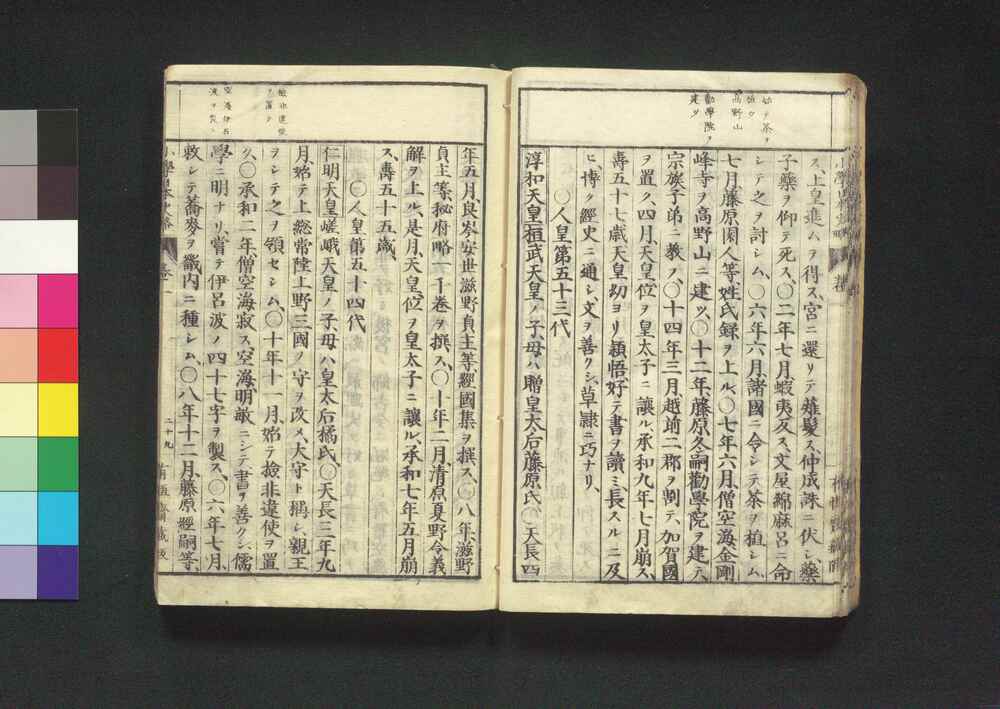 始テ茶ヲ
植ウ
高野山
勸學院ヲ
建ツ
ス、上皇進ムヲ得ス、宮ニ還リテ薙髮ス、仲成誅ニ伏シ、藥
子藥ヲ仰テ死ス、〇二年七月、蝦夷反ス、文屋綿麻呂ニ命
シテ之ヲ討シム、〇六年六月、諸國ニ令シテ茶ヲ植シム、
七月、藤原園人等、姓氏録ヲ上ル、〇七年六月、僧空海、金剛
峰寺ヲ高野山ニ建ツ、〇十二年、藤原冬嗣勸學院ヲ建テ、
宗族子弟ニ教フ、〇十四年三月、越前二郡ヲ割テ、加賀國
ヲ置ク、四月、天皇位ヲ皇太子ニ讓ル、承和九年七月崩ス、
壽五十七歳天皇幼ヨリ頴悟好テ書ヲ讀ミ、長スルニ及
ヒ、博ク經史ニ通シ、文ヲ善クシ、草隷ニ巧ナリ、
〇人皇第五十三代
淳和天皇桓武天皇ノ子母ハ贈皇太后藤原氏〇天長四
檢非違使
ヲ置ク
空海伊呂
波ヲ製ス
年五月、良岑安世滋野貞主等、經國集ヲ撰ス、〇八年、滋野
貞主等、秘府略一千卷ヲ撰ス、〇十年二月、清原夏野令義
解ヲ上ル、是月、天皇位ヲ皇太子ニ讓ル、承和七年五月崩
ス、壽五十五歳、
〇人皇第五十四代
仁明天皇嵯峨天皇ノ子母ハ皇太后橘氏、〇天長三年九
月、始テ上総常陸上野三國ノ守ヲ改メ、大守ト稱シ、親王
ヲシテ之ヲ領セシム、〇十年十一月、始テ檢非違使ヲ置
ク、〇承和二年、僧空海寂ス、空海明敏ニシテ書ヲ善クシ、儒
學ニ明ナリ、嘗テ伊呂波ノ四十七字ヲ製ス、〇六年七月、
敕シテ蕎麥ヲ畿内ニ種シム、〇八年十二月、藤原經嗣等、
二十九